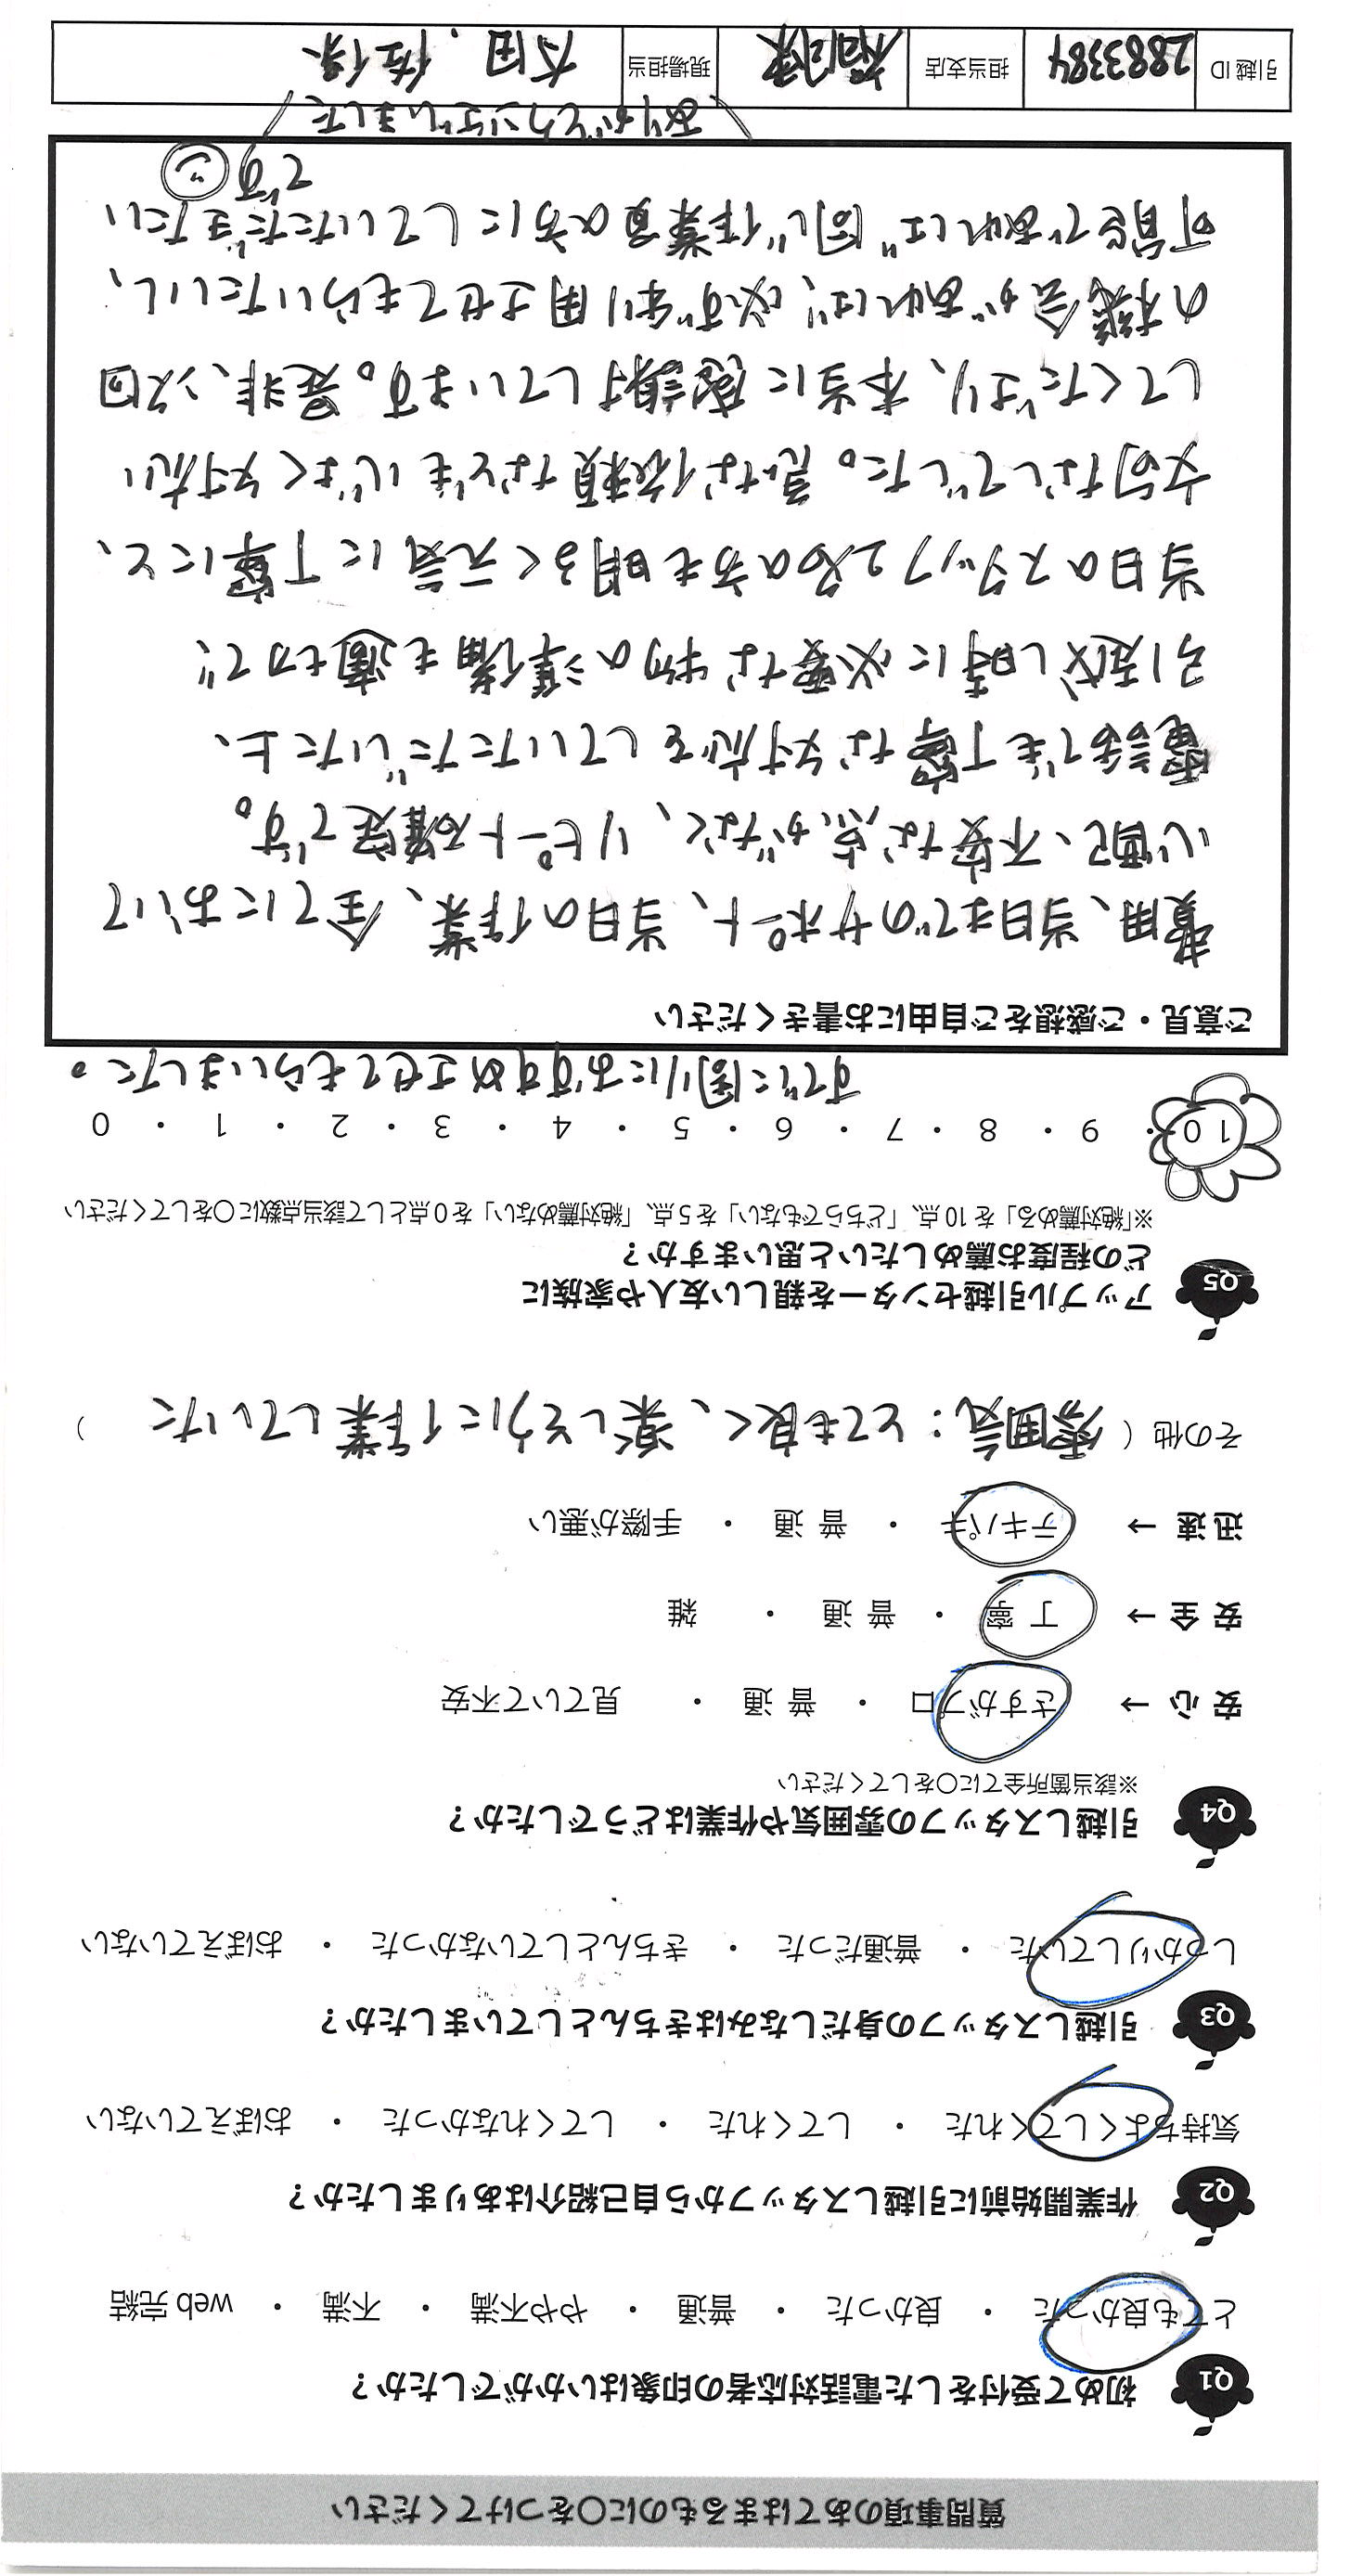 質問事項のあてはまるものに〇をつけてください
Q1 初めて受付をした電話対応者の印象はいかがでしたか?
とても良かった ・ 良かった ・ 普通 ・ やや不満 ・ 不満 ・ web 完結
Q2 作業開始前に引越しスタッフから自己紹介はありましたか?
気持ちよくしてくれた ・ してくれた ・ してくれなかった ・ おぼえていない
Q3 引越しスタッフの身だしなみはきちんとしていましたか?
しっかりしていた ・ 普通だった ・ きちんとしていなかった ・ おぼえていない
Q4 引越しスタッフの雰囲気や作業はどうでしたか?
※該当箇所全てに〇をしてください
安 心 → さすがプロ ・ 普 通 ・ 見ていて不安
安 全 → 丁 寧 ・ 普 通 ・ 雑
迅 速 → テキパキ ・ 普 通 ・ 手際が悪い
その他 ( 雰囲気:とても良く、楽しそうに作業していた )
Q5 アップル引越センターを親しい友人や家族に
どの程度お薦めしたいと思いますか?
※「絶対薦める」を 10 点、「どちらでもない」を 5 点、「絶対薦めない」を 0 点として該当点数に〇をしてください
10 ・ 9 ・ 8 ・ 7 ・ 6 ・ 5 ・ 4 ・ 3 ・ 2 ・ 1 ・ 0
すでに周りにおすすめさせてもらいました。
ご意見・ご感想をご自由にお書きください
費用、当日までのサポート、当日の作業、全てにおいて
心配、不安な点がなく、リピート確定です。
電話でも丁寧な対応をしていただいた上、
引越し時に必要な物の準備も適切で、
当日のスタッフ2名の方も明るく元気に丁寧にと、
文句なしでした。急な依頼なども心よく対応
してくださり、本当に感謝しています。是非、次回
の機会があれば、必ず利用させてもらいたいし、
可能であれば同じ作業員の方にしていただきたい
です
ありがとうございました
引越 ID 2883384 担当支店 現場担当